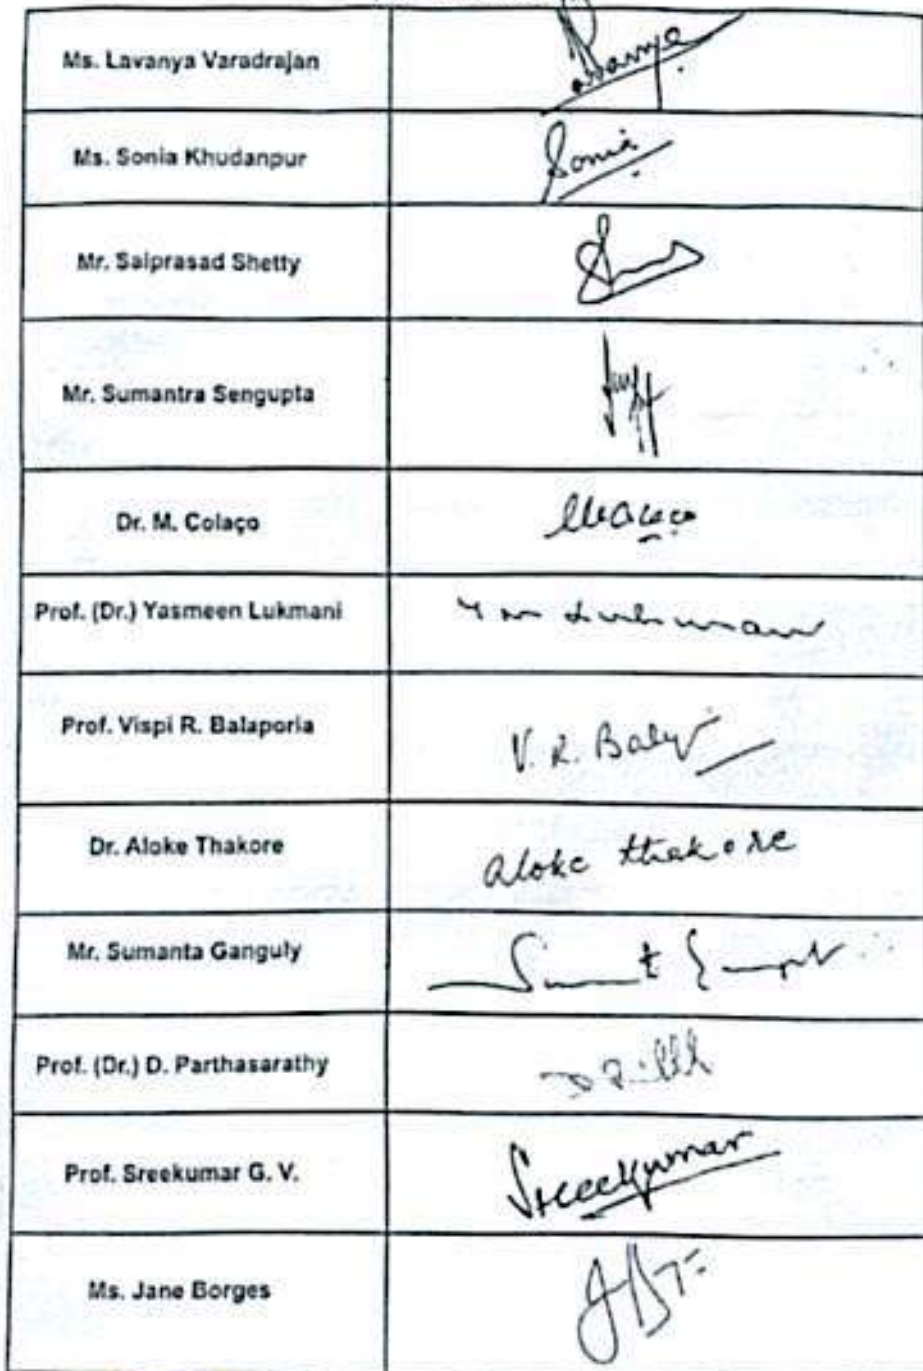 Ms. Lavanya Varadrajan
Lavanya
Ms. Sonia Khudanpur
Sonia
Mr. Saiprasad Shetty
Mr. Sumantra Sengupta
Dr. M. Colaço
MColaço
Prof. (Dr.) Yasmeen Lukmani
Prof. Vispi R. Balaporia
V. R.
Dr. Aloke Thakore
Aloke Thakore
Mr. Sumanta Ganguly
Prof. (Dr.) D. Parthasarathy
Prof. Sreekumar G. V.
Sreekumar
Ms. Jane Borges